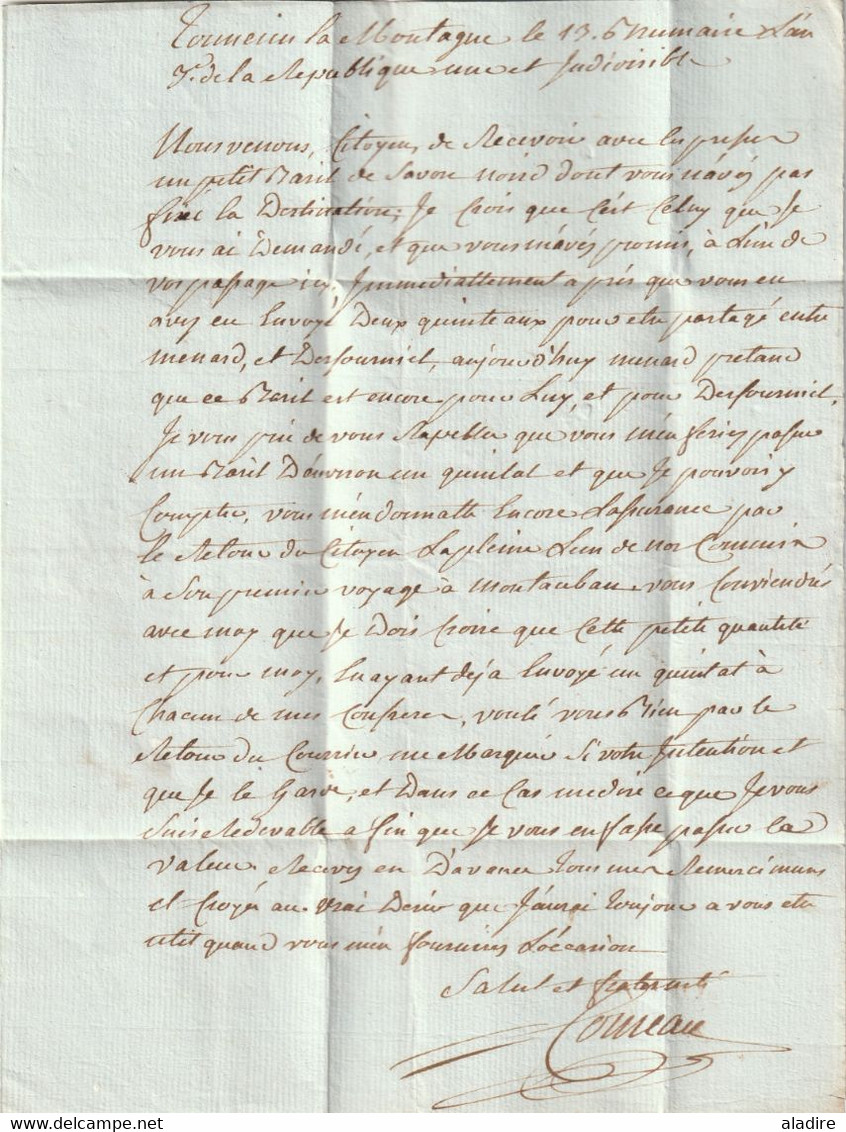 Tonneins la Montagne le 13. Brumaire L'an
3e. de la Republique une et Indivisible
Nous venons, Citoyen, de Recevoir avec
un petit Baril de Savon noird dont vous n'avés pas
fixé la Destination, Je Crois que C'est Celuy que Je
vous ai Demandé, et que vous m'avés promis, à L'un de
vos passage icy. Immediattement aprés que vous en
avés eu Envoyé Deux quinteaux pour etre partagé entre
menard, et Desfourniel, aujourd'huy menard pretand
que ce Baril est encore pour Luy, et pour Desfourniel,
Je vous prie de vous Rapeller que vous m'en feriés passer
un Baril D'environ un quintal et que Je pouvois y
Compter, vous m'en donnatte Encore L'assurance par
le Retour du Citoyen Lapleine L'un de nos Commis
à Son premier voyage à Montauban vous Conviendrés
avec moy que Je Dois Croire que Cette petite quantité
et pour moy, En ayant deja Envoyé un quintat à
Chacun de mes Confreres, voulé vous Bien par le
Retour du Courrier me Marquer Si votre Intention et
que Je le Garde, et Dans ce Cas me dire ce que Je vous
Suis Redevable afin que Je vous en fasse passer la
valeur. Recevés en D'avance Tous mes Remercimens
et Croyés au vrai Desir que J'aurai Toujour a vous etre
utile quand vous m'en fournirés L'occasion
Salut et fraternité
aladire
delcampe.net